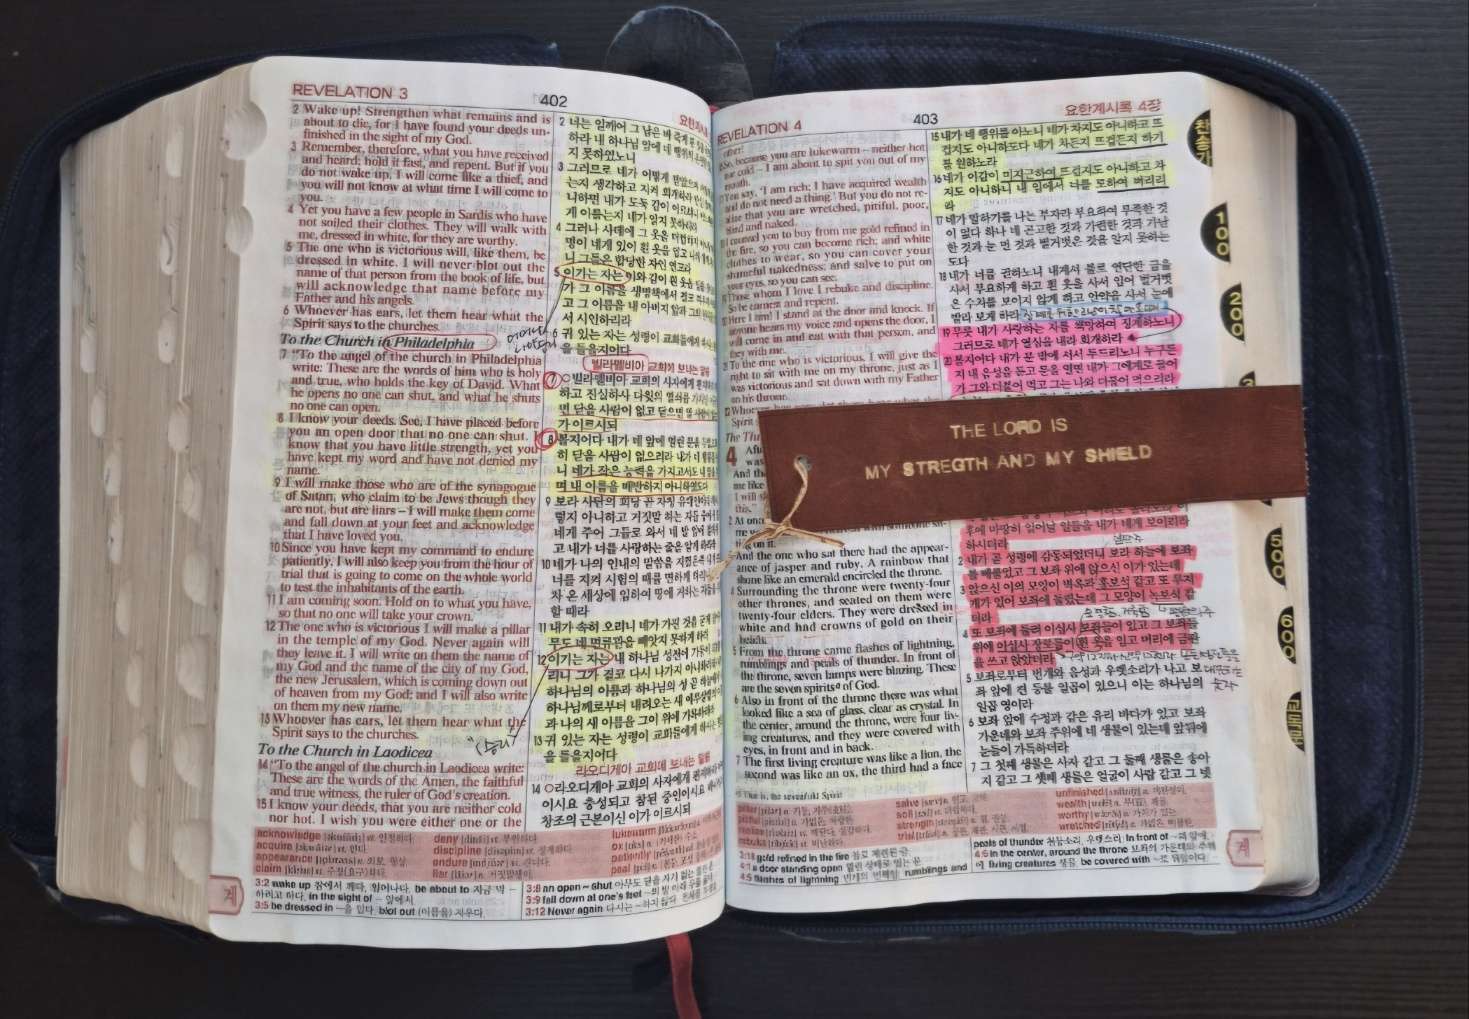 REVELATION 3
402
2 Wake up! Strengthen what remains and is
about to die, for I have found your deeds un-
finished in the sight of my God.
3 Remember, therefore, what you have received
and heard; hold it fast, and repent. But if you
do not wake up, I will come like a thief, and
you will not know at what time I will come to
you.
4 Yet you have a few people in Sardis who have
not soiled their clothes. They will walk with
me, dressed in white, for they are worthy.
5 The one who is victorious will, like them, be
dressed in white. I will never blot out the
name of that person from the book of life, but
will acknowledge that name before my
Father and his angels.
6 Whoever has ears, let them hear what the
Spirit says to the churches.
To the Church in Philadelphia
7 "To the angel of the church in Philadelphia
write: These are the words of him who is holy
and true, who holds the key of David. What
he opens no one can shut, and what he shuts
no one can open.
8 I know your deeds. See, I have placed before
you an open door that no one can shut. I
know that you have little strength, yet you
have kept my word and have not denied my
name.
9 I will make those who are of the synagogue
of Satan, who claim to be Jews though they
are not, but are liars – I will make them come
and fall down at your feet and acknowledge
that I have loved you.
10 Since you have kept my command to endure
patiently, I will also keep you from the hour of
trial that is going to come on the whole world
to test the inhabitants of the earth.
11 I am coming soon. Hold on to what you have,
so that no one will take your crown.
12 The one who is victorious I will make a pillar
in the temple of my God. Never again will
they leave it. I will write on them the name of
my God and the name of the city of my God,
the new Jerusalem, which is coming down out
of heaven from my God; and I will also write
on them my new name.
13 Whoever has ears, let them hear what the
Spirit says to the churches.
To the Church in Laodicea
14 "To the angel of the church in Laodicea write:
These are the words of the Amen, the faithful
and true witness, the ruler of God's creation.
15 I know your deeds, that you are neither cold
nor hot. I wish you were either one or the
2 너는 일깨어 그 남은 바 죽게 된
하라 내 하나님 앞에 네 행위의
지 못하였노니
3 그러므로 네가 어떻게 받았으며
는지 생각하고 지켜 회개하라
니하면 내가 도둑 같이 이르리니
게 이를는지 네가 알지 못하리라
4 그러나 사데에 그 옷을 더럽히지
명이 네게 있어 흰 옷을 입고 나와
니 그들은 합당한 자인 연고라
5 이기는 자는 이와 같이 흰 옷을
가 그 이름을 생명책에서 결코
고 그 이름을 내 아버지 앞과 그의
서 시인하리라
6 귀 있는 자는 성령이 교회들에게
을 들을지어다
빌라델비아 교회에 보내는 말씀
7 ○빌라델비아 교회의 사자에게
하고 진실하사 다윗의 열쇠를 가지신
면 닫을 사람이 없고 닫으면 열 사람
가 이르시되
8 볼지어다 내가 네 앞에 열린 문을
히 닫을 사람이 없으리라 내가 네
니 네가 작은 능력을 가지고서도 내
며 내 이름을 배반하지 아니하였도다
9 보라 사탄의 회당 곧 자칭 유대인이라
렇지 아니하고 거짓말 하는 자들
네게 주어 그들로 와서 네 발 앞에
고 내가 너를 사랑하는 줄을 알게
10 네가 나의 인내의 말씀을 지켰은즉
너를 지켜 시험의 때를 면하게 하리니
차 온 세상에 임하여 땅에 거하는 자들
할 때라
11 내가 속히 오리니 네가 가진 것을 굳게
무도 네 면류관을 빼앗지 못하게 하라
12 이기는 자는 내 하나님 성전에 기둥이
리니 그가 결코 다시 나가지 아니하리라
하나님의 이름과 하나님의 성 곧 하늘에서
하나님께로부터 내려오는 새 예루살렘의
과 나의 새 이름을 그이 위에 기록하리라
13 귀 있는 자는 성령이 교회들에게 하시는
을 들을지어다
라오디게아 교회에 보내는 말씀
14 ○라오디게아 교회의 사자에게 편지하라
이시요 충성되고 참된 증인이시요
창조의 근본이신 이가 이르시되
acknowledge
acquire
appearance
claim
deny
discipline
endure
liar
lukewarm
ox
patiently
peal
3:2 wake up 잠에서 깨다, 일어나다. be about to
in the sight of
3:5 be dressed in ~을 입다. blot out (이름을) 지우다.
3:8 an open ~ shut
3:9 fall down at one's feet
3:12 Never again 다시는 ~하지 않다.
계
REVELATION 4
403
요한계시록 4장
other!
16 So, because you are lukewarm – neither hot
nor cold – I am about to spit you out of my
mouth.
17 You say, 'I am rich; I have acquired wealth
and do not need a thing.' But you do not re-
alize that you are wretched, pitiful, poor,
blind and naked.
18 I counsel you to buy from me gold refined in
the fire, so you can become rich; and white
clothes to wear, so you can cover your
shameful nakedness; and salve to put on
your eyes, so you can see.
19 Those whom I love I rebuke and discipline.
So be earnest and repent.
20 Here I am! I stand at the door and knock. If
anyone hears my voice and opens the door, I
will come in and eat with that person, and
they with me.
21 To the one who is victorious, I will give the
right to sit with me on my throne, just as I
was victorious and sat down with my Father
on his throne.
4
And the one who sat there had the appear-
ance of jasper and ruby. A rainbow that
shone like an emerald encircled the throne.
4 Surrounding the throne were twenty-four
other thrones, and seated on them were
twenty-four elders. They were dressed in
white and had crowns of gold on their
heads.
5 From the throne came flashes of lightning,
rumblings and peals of thunder. In front of
the throne, seven lamps were blazing. These
are the seven spirits of God.
6 Also in front of the throne there was what
looked like a sea of glass, clear as crystal. In
the center, around the throne, were four liv-
ing creatures, and they were covered with
eyes, in front and in back.
7 The first living creature was like a lion, the
second was like an ox, the third had a face
15 내가 네 행위를 아노니 네가 차지도 아니하고 뜨
겁지도 아니하도다 네가 차든지 뜨겁든지 하기
를 원하노라
16 네가 이같이 미지근하여 뜨겁지도 아니하고 차
지도 아니하니 내 입에서 너를 토하여 버리리
라
17 네가 말하기를 나는 부자라 부요하여 부족한 것
이 없다 하나 네 곤고한 것과 가련한 것과 가난
한 것과 눈 먼 것과 벌거벗은 것을 알지 못하는
도다
18 내가 너를 권하노니 내게서 불로 연단한 금을
사서 부요하게 하고 흰 옷을 사서 입어 벌거벗
은 수치를 보이지 않게 하고 안약을 사서 눈에
발라 보게 하라
19 무릇 내가 사랑하는 자를 책망하여 징계하노니
그러므로 네가 열심을 내라 회개하라
20 볼지어다 내가 문 밖에 서서 두드리노니 누구든
지 내 음성을 듣고 문을 열면 내가 그에게로 들어
가 그와 더불어 먹고 그는 나와 더불어 먹으리라
THE LORD IS
MY STREGTH AND MY SHIELD
후에 마땅히 일어날 일들을 내가 네게 보이리라
하시더라
2 내가 곧 성령에 감동되었더니 보라 하늘에 보좌
를 베풀었고 그 보좌 위에 앉으신 이가 있는데
3 앉으신 이의 모양이 벽옥과 홍보석 같고 또 무지
개가 있어 보좌에 둘렸는데 그 모양이 녹보석 같
더라
4 또 보좌에 둘려 이십사 보좌들이 있고 그 보좌들
위에 이십사 장로들이 흰 옷을 입고 머리에 금관
을 쓰고 앉았더라
5 보좌로부터 번개와 음성과 우렛소리가 나고 보
좌 앞에 켠 등불 일곱이 있으니 이는 하나님의
일곱 영이라
6 보좌 앞에 수정과 같은 유리 바다가 있고 보좌
가운데와 보좌 주위에 네 생물이 있는데 앞뒤에
눈들이 가득하더라
7 그 첫째 생물은 사자 같고 그 둘째 생물은 송아
지 같고 그 셋째 생물은 얼굴이 사람 같고 그 넷
salve
soil
strength
trial
unfinished
wealth
worthy
wretched
3:18 gold refined in the fire 불로 제련된 금
4:1 a door standing open 열린 상태로 있는 문
4:5 flashes of lightning 번개의 번쩍임. rumblings and
peals of thunder 천둥소리, 우렛소리. In front of ~의 앞에.
4:6 in the center, around the throne
living creatures 생물. be covered with
계
찬송가
100
200
500
600
교독문